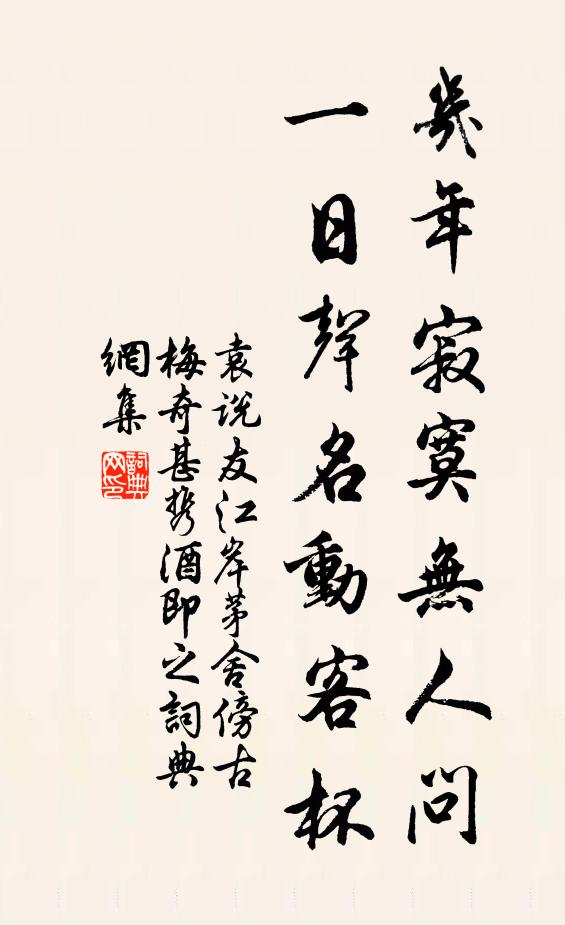 幾年寂寞無人問
一日聲名動客杯
袁說友江岸茅舍傍古
梅奇甚携酒即之詞典
網集
詞典
网印